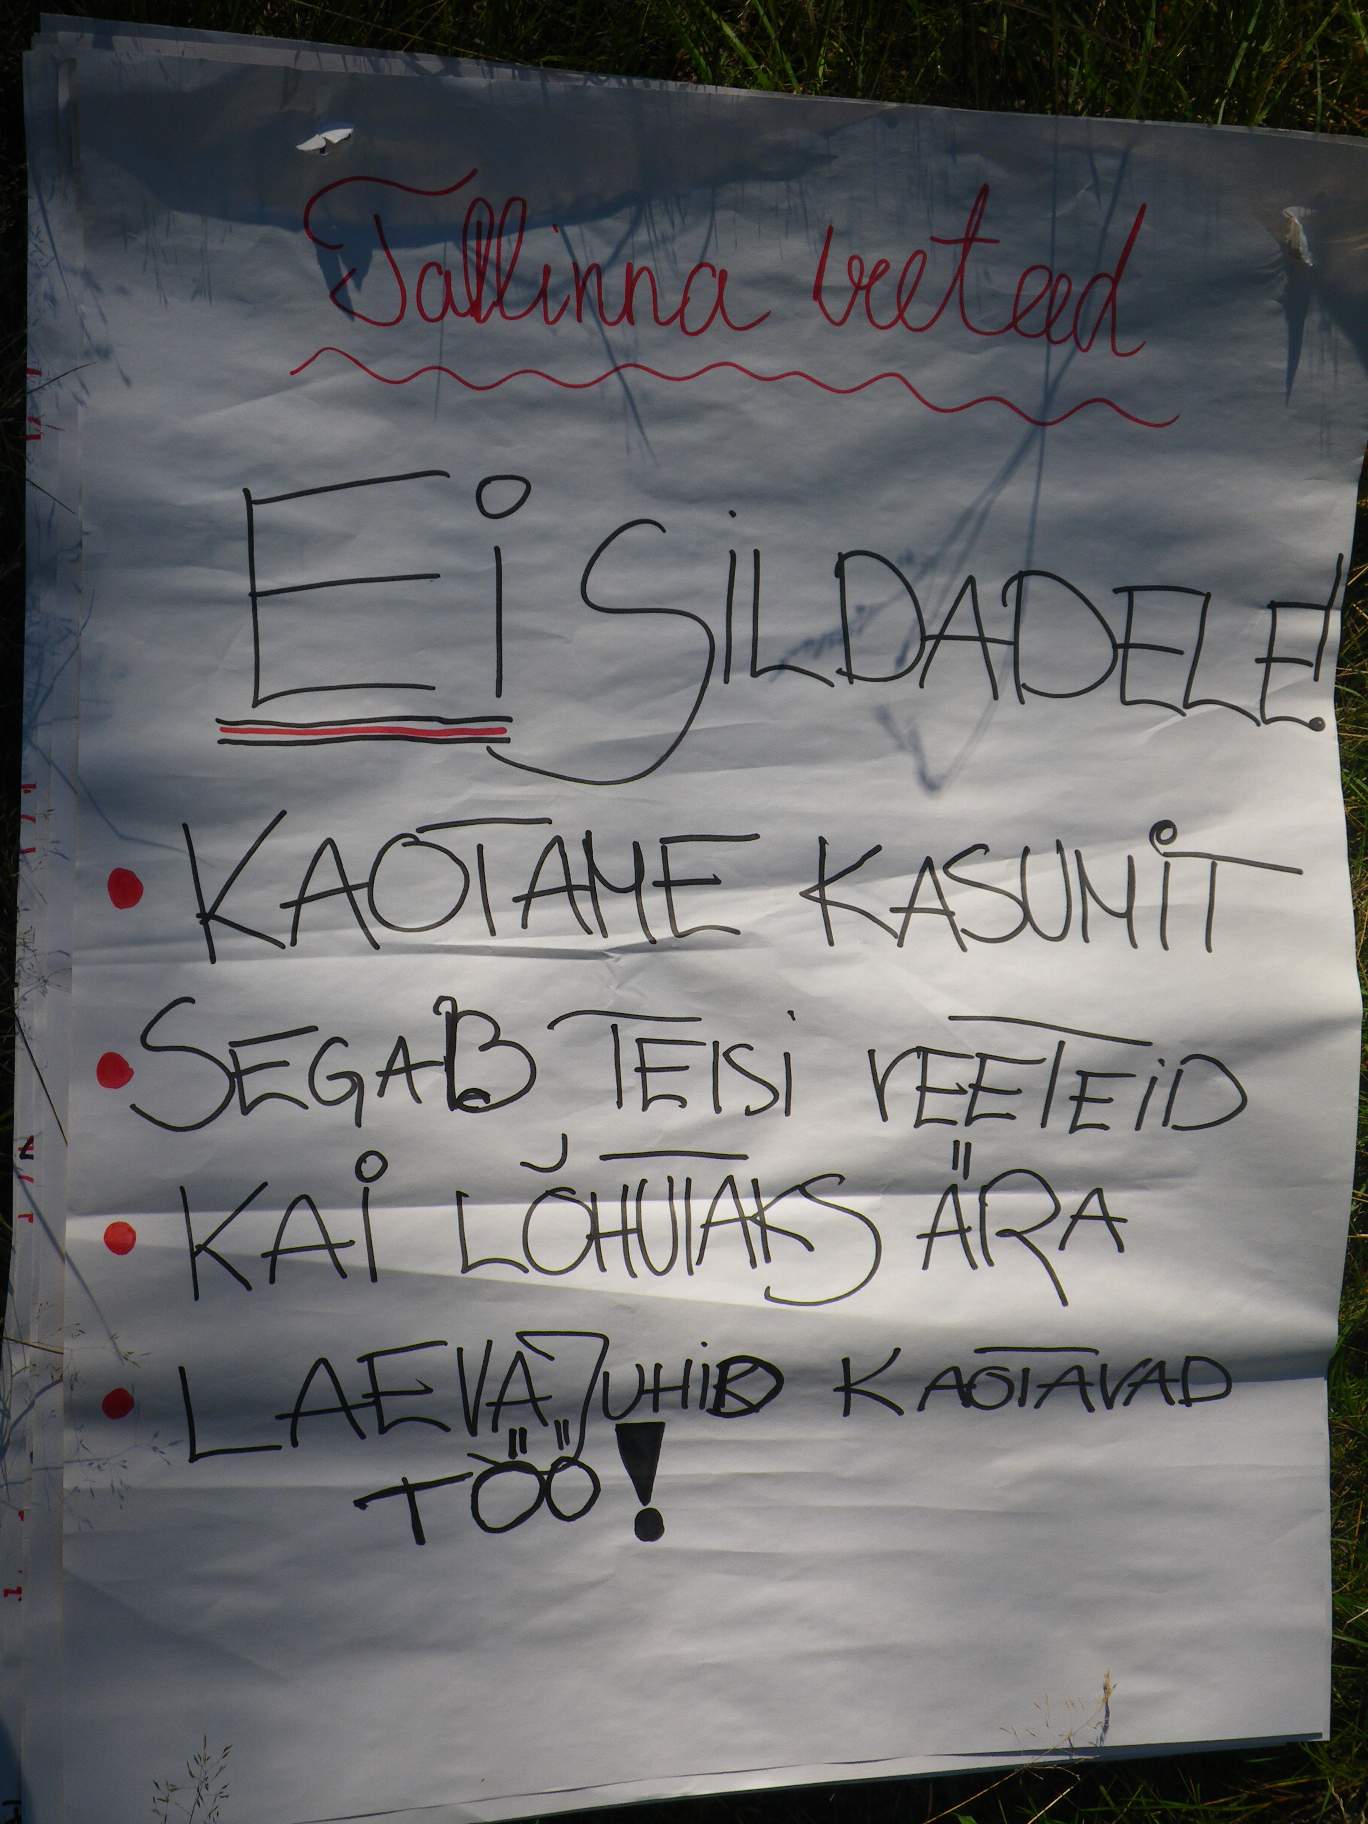 Tallinna veeteed
Ei SILDADELE!
KAOTAME KASUMIT
SEGAB TEISI VEETEID
KAI LÕHUTAKS ÄRA
LAEVAJUHID KAOTAVAD
TÖÖ!